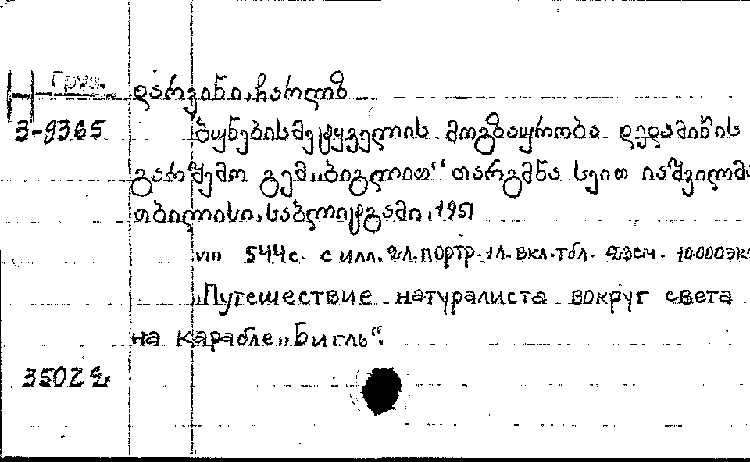 Н Груз. დარვინი, ჩარლზ
3-9365 ბუნებისმეტყველის მოგზაურობა დედამიწის
გარშემო გემ „ბიგლით“ თარგმნა სეით იაშვილმა
თბილისი, საბლიტგამი, 1951
VIII 544 с. с илл. портр. 1 л. вкл. табл. 10.000 экз
„Путешествие натуралиста вокруг света
на карабле „Бигль“.
35029